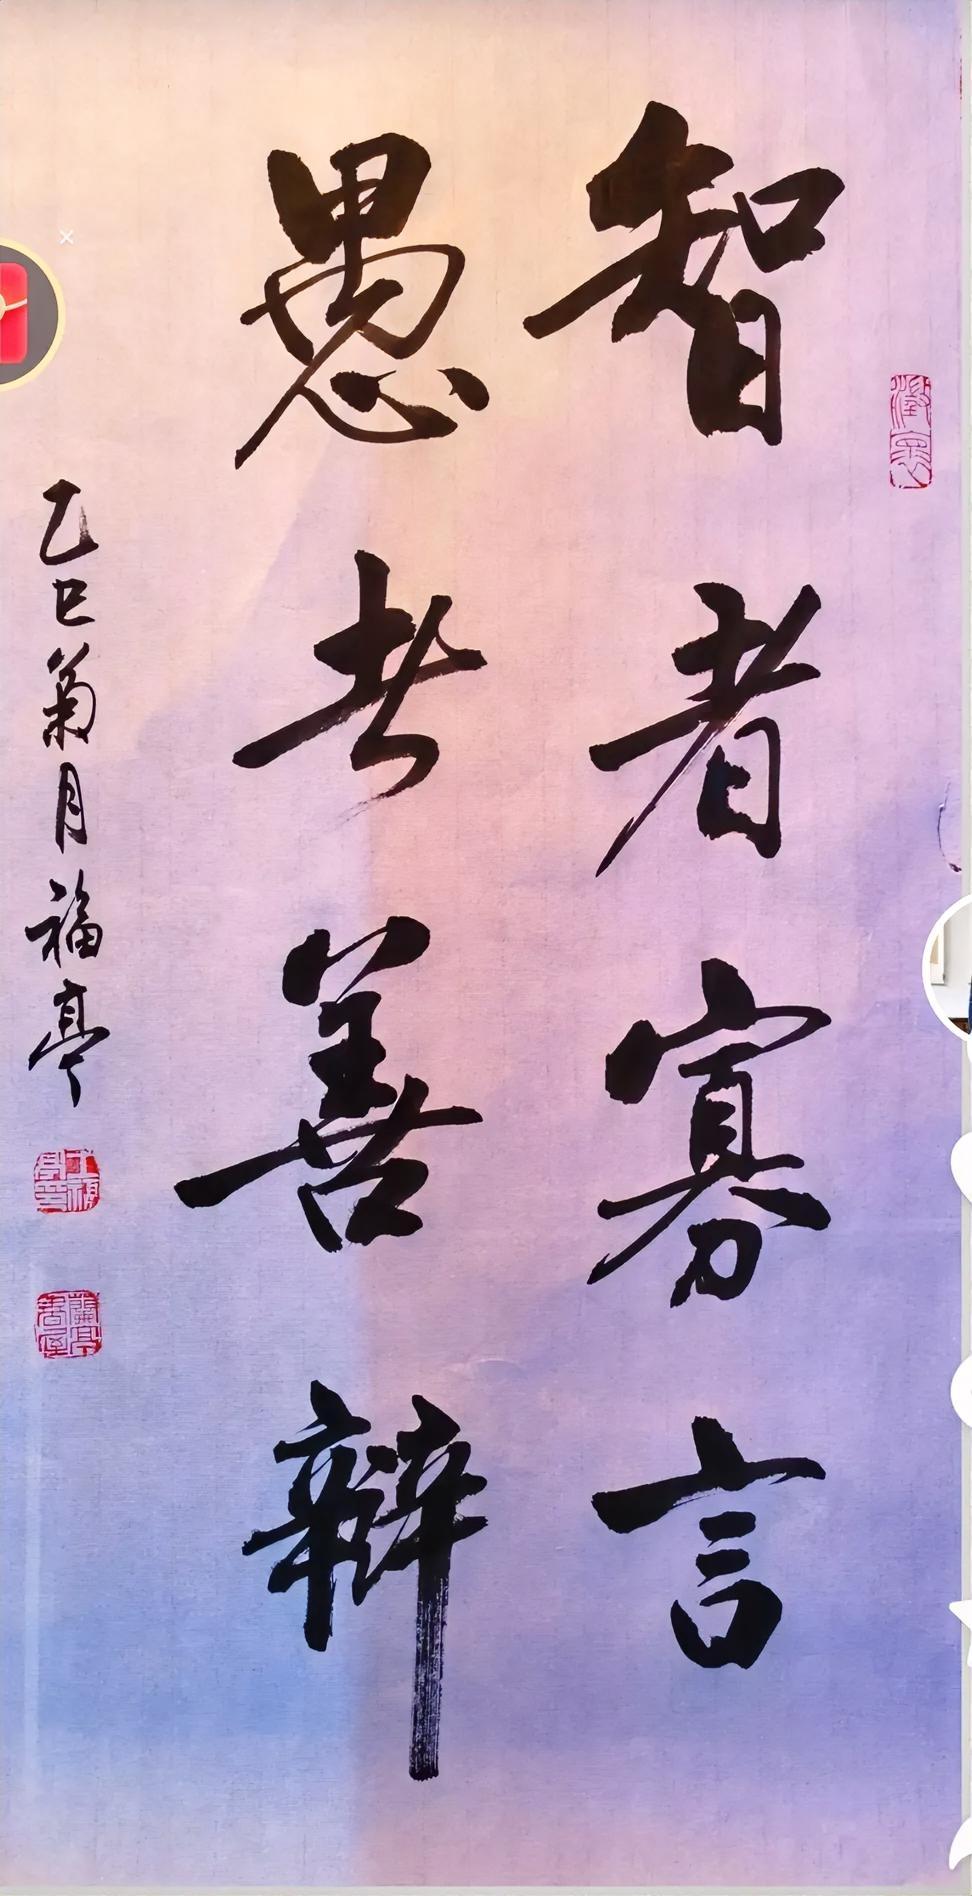 智者寡言
愚者善辩
乙巳菊月福亭